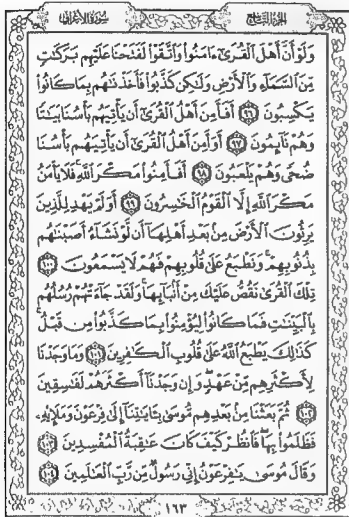 سورة الأعراف
الجزء التاسع
وَلَوْ أَنَّ أَهْلَ ٱلْقُرَىٰٓ ءَامَنُوا۟ وَٱتَّقَوْا۟ لَفَتَحْنَا عَلَيْهِم بَرَكَـٰتٍ
مِّنَ ٱلسَّمَآءِ وَٱلْأَرْضِ وَلَـٰكِن كَذَّبُوا۟ فَأَخَذْنَـٰهُم بِمَا كَانُوا۟
يَكْسِبُونَ ٩٦ أَفَأَمِنَ أَهْلُ ٱلْقُرَىٰٓ أَن يَأْتِيَهُم بَأْسُنَا بَيَـٰتًا
وَهُمْ نَآئِمُونَ ٩٧ أَوَأَمِنَ أَهْلُ ٱلْقُرَىٰٓ أَن يَأْتِيَهُم بَأْسُنَا
ضُحًى وَهُمْ يَلْعَبُونَ ٩٨ أَفَأَمِنُوا۟ مَكْرَ ٱللَّهِ فَلَا يَأْمَنُ
مَكْرَ ٱللَّهِ إِلَّا ٱلْقَوْمُ ٱلْخَـٰسِرُونَ ٩٩ أَوَلَمْ يَهْدِ لِلَّذِينَ
يَرِثُونَ ٱلْأَرْضَ مِنۢ بَعْدِ أَهْلِهَآ أَن لَّوْ نَشَآءُ أَصَبْنَـٰهُم
بِذُنُوبِهِمْ وَنَطْبَعُ عَلَىٰ قُلُوبِهِمْ فَهُمْ لَا يَسْمَعُونَ ١٠٠
تِلْكَ ٱلْقُرَىٰ نَقُصُّ عَلَيْكَ مِنْ أَنۢبَآئِهَا وَلَقَدْ جَآءَتْهُمْ رُسُلُهُم
بِٱلْبَيِّنَـٰتِ فَمَا كَانُوا۟ لِيُؤْمِنُوا۟ بِمَا كَذَّبُوا۟ مِن قَبْلُ
كَذَٰلِكَ يَطْبَعُ ٱللَّهُ عَلَىٰ قُلُوبِ ٱلْكَـٰفِرِينَ ١٠١ وَمَا وَجَدْنَا
لِأَكْثَرِهِم مِّنْ عَهْدٍ وَإِن وَجَدْنَآ أَكْثَرَهُمْ لَفَـٰسِقِينَ
١٠٢ ثُمَّ بَعَثْنَا مِنۢ بَعْدِهِم مُّوسَىٰ بِـَٔايَـٰتِنَآ إِلَىٰ فِرْعَوْنَ وَمَلَإِي۟هِۦ
فَظَلَمُوا۟ بِهَا فَٱنظُرْ كَيْفَ كَانَ عَـٰقِبَةُ ٱلْمُفْسِدِينَ ١٠٣
وَقَالَ مُوسَىٰ يَـٰفِرْعَوْنُ إِنِّى رَسُولٌ مِّن رَّبِّ ٱلْعَـٰلَمِينَ ١٠٤
١٦٣